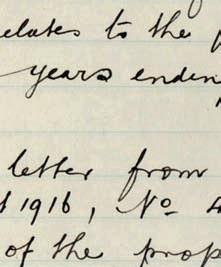 relates to the p
years endin
letter from
t 1916, No. 4
of the prop